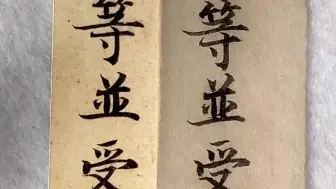 等並受
等並受